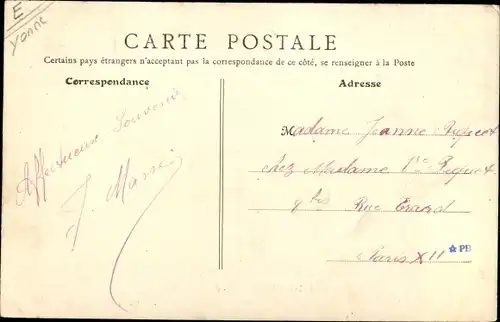 E
YONNE
CARTE POSTALE
Certains pays étrangers n'acceptant pas la correspondance de ce côté, se renseigner à la Poste
Correspondance
Adresse
Affectueux Souvenir
J.
Madame Jeanne
chez Madame
8 bis Rue Erard
Paris XII
PB